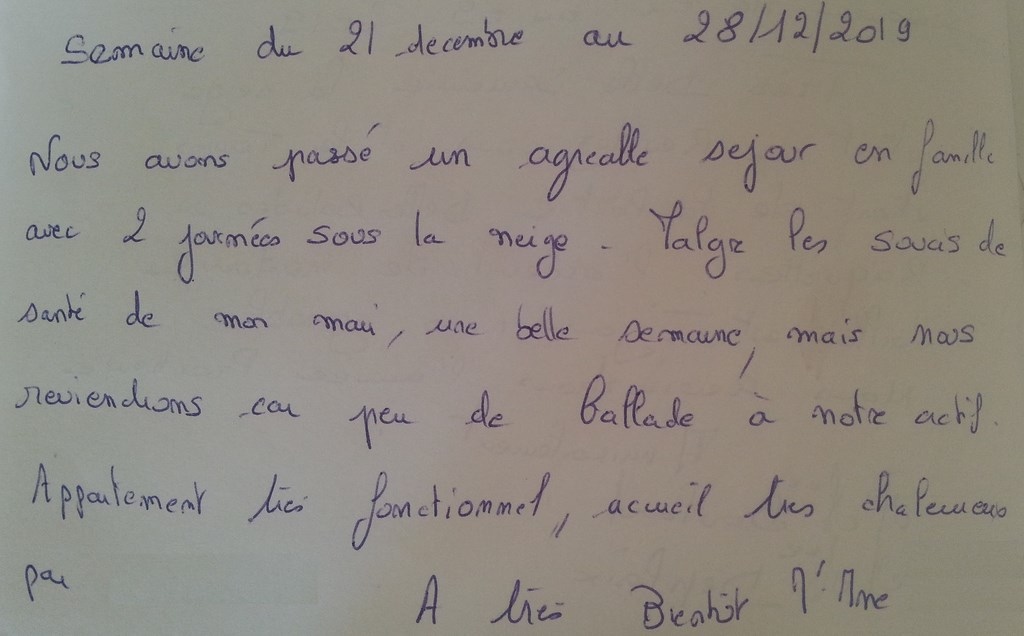 Semaine du 21 decembre au 28/12/2019
Nous avons passé un agreable sejour en famille
avec 2 journées sous la neige. Malgre les soucis de
santé de mon mari, une belle semaine, mais nous
reviendrons car peu de ballade à notre actif.
Appartement très fonctionnel, accueil tres chaleureux
par
A très Bientôt M. Mme